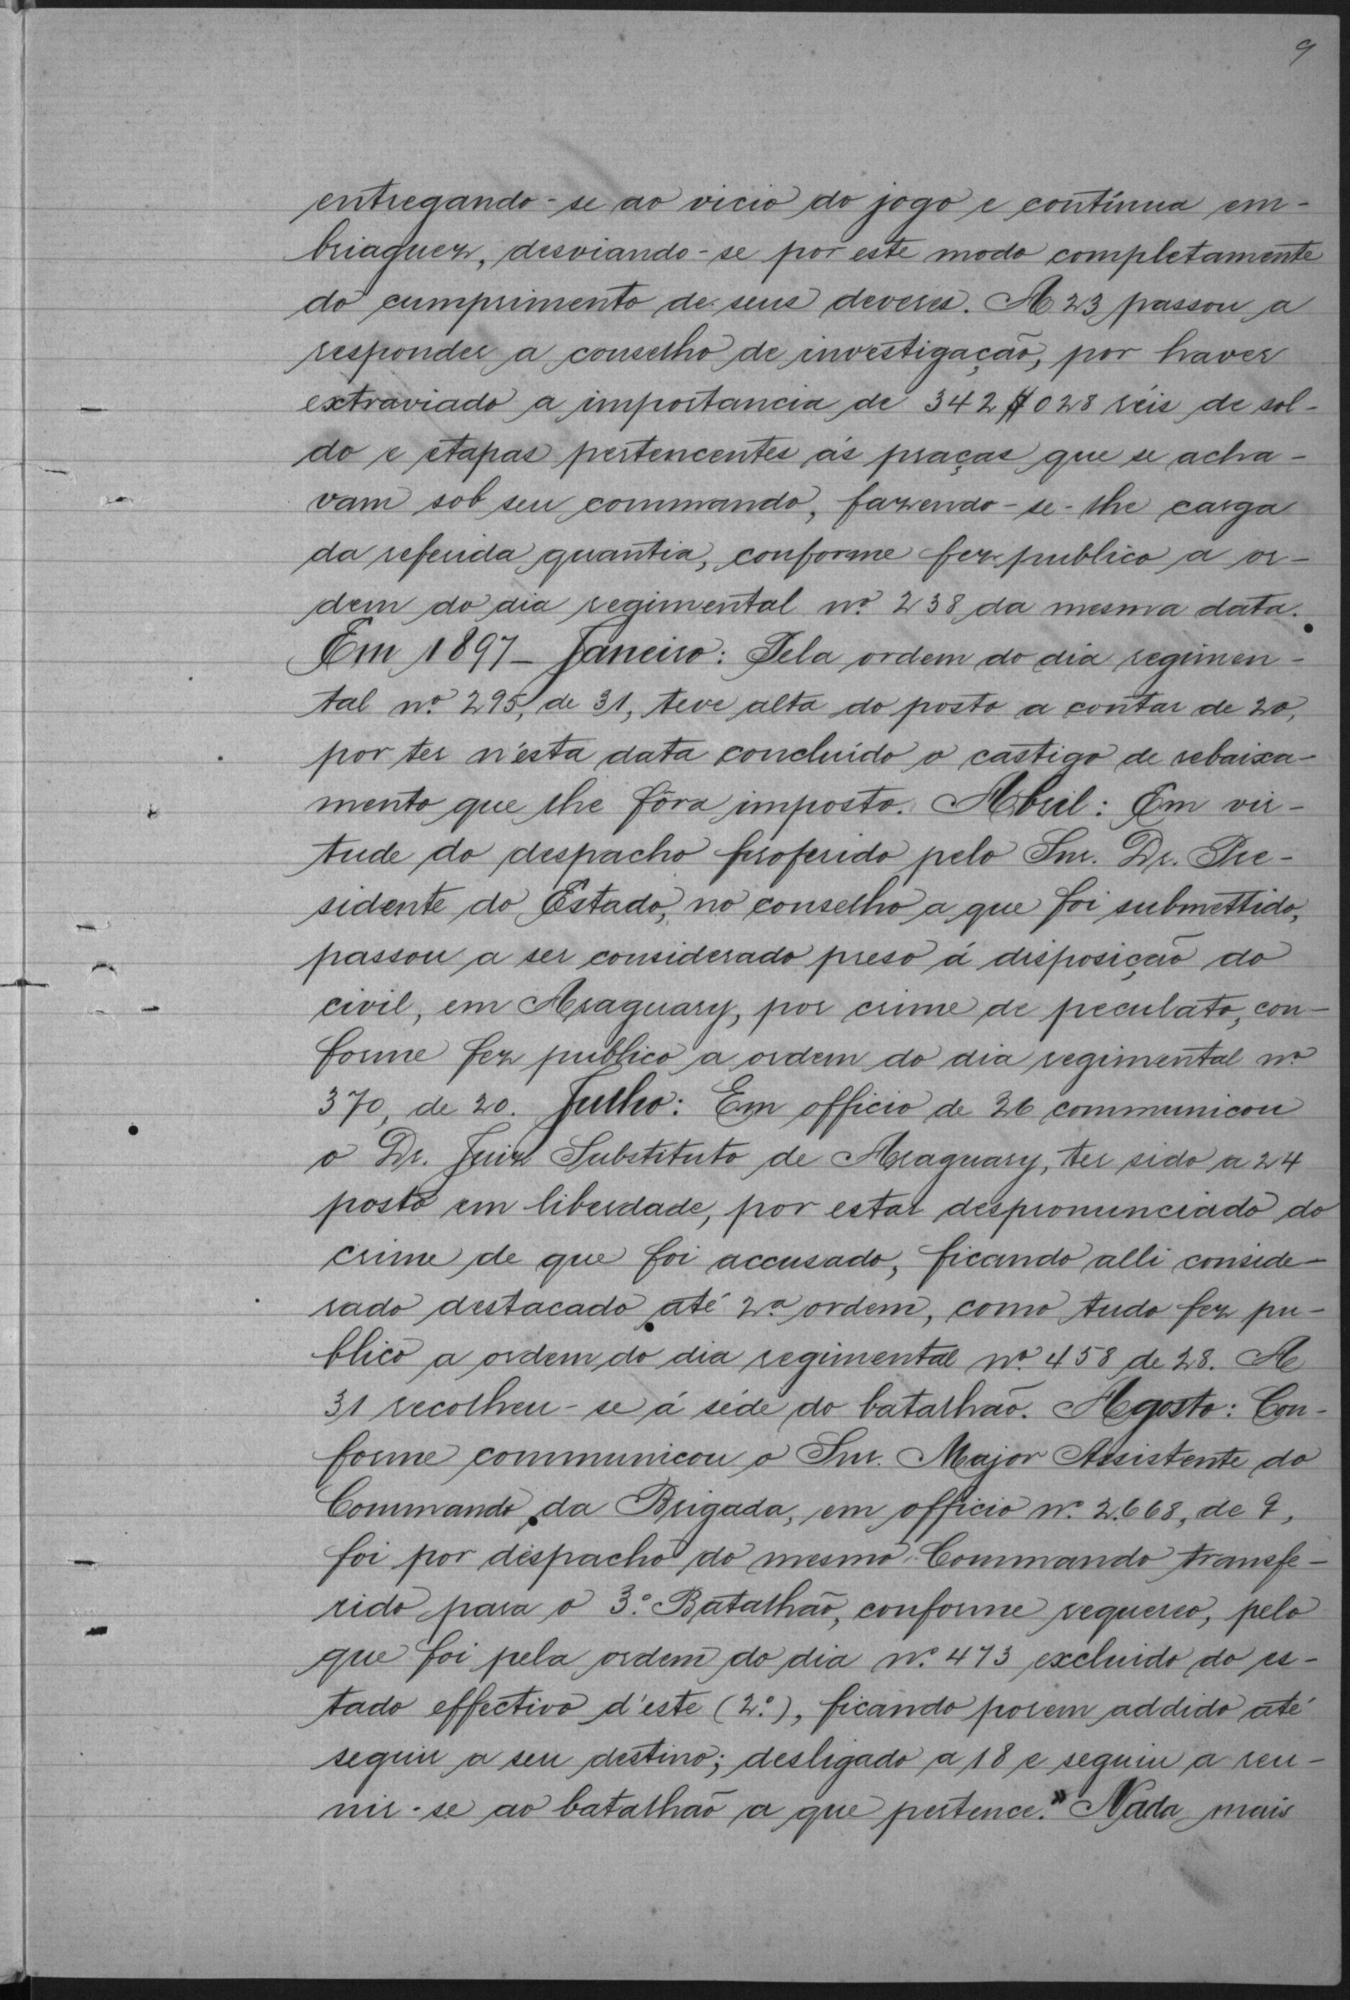 9
entregando-se ao vicio do jogo e contínua em-
briaguez, desviando-se por este modo completamente
do cumprimento de seus deveres. A 23 passou a
responder a conselho de investigação, por haver
extraviado a importancia de 342$028 réis de sol-
do e etapas pertencentes ás praças que se acha-
vam sob seu commando, fazendo-se-lhe carga
da referida quantia, conforme fez publico a or-
dem do dia regimental nº 238 da mesma data.
Em 1897 - Janeiro: Pela ordem do dia regimen-
tal nº 295, de 31, teve alta do posto a contar de 20,
por ter n'esta data concluído o castigo de rebaixa-
mento que lhe fôra imposto. Abril: Em vir-
tude do despacho proferido pelo Snr. Dr. Pre-
sidente do Estado, no conselho a que foi submettido,
passou a ser considerado preso á disposição do
civil, em Araguary, por crime de peculato, con-
forme fez publico a ordem do dia regimental nº
370, de 20. Julho: Em officio de 26 communicou
o Dr. Juiz Substituto de Araguary, ter sido a 24
posto em liberdade, por estar despronunciado do
crime de que foi accusado, ficando alli conside-
rado destacado até 2ª ordem, como tudo fez pu-
blico a ordem do dia regimental nº 458 de 28. A
31 recolheu-se á séde do batalhão. Agosto: Con-
forme communicou o Snr. Major Assistente do
Commando da Brigada, em officio nº 2.668, de 9,
foi por despacho do mesmo Commando transfe-
rido para o 3º Batalhão, conforme requereo, pelo
que foi pela ordem do dia nº 473 excluido do es-
tado effectivo d'este (2º), ficando porem addido até
seguir a seu destino; desligado a 18 e seguiu a reu-
nir-se ao batalhão a que pertence." Nada mais